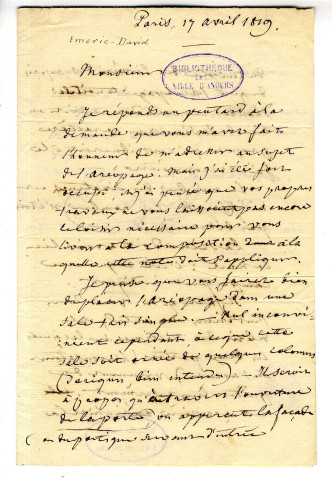 Paris, 17 avril 1819.
Emeric-David
Monsieur
BIBLIOTHÈQUE
DE LA
VILLE D'ANGERS
Je réponds un peu tard à la
demande que vous m'avez fait
l'honneur de m'adresser au sujet
de l'aréopage. Mais j'ai été fort
occupé et j'ai pensé que vos propres
travaux ne vous laissoient pas encore
le loisir nécessaire pour vous
livrer à la composition à la
quelle cette note doit s'appliquer.
Je pense que vous ferez bien
de placer l'aréopage dans une
salle fort simple. Nul inconvé-
nient cependant à ce que cette
salle soit ornée de quelques colonnes
(doriques, bien entendu) — Il seroit
à propos qu'à travers l'ouverture
de la porte, on apperçut la façade
(ou du portique servant d'entrée